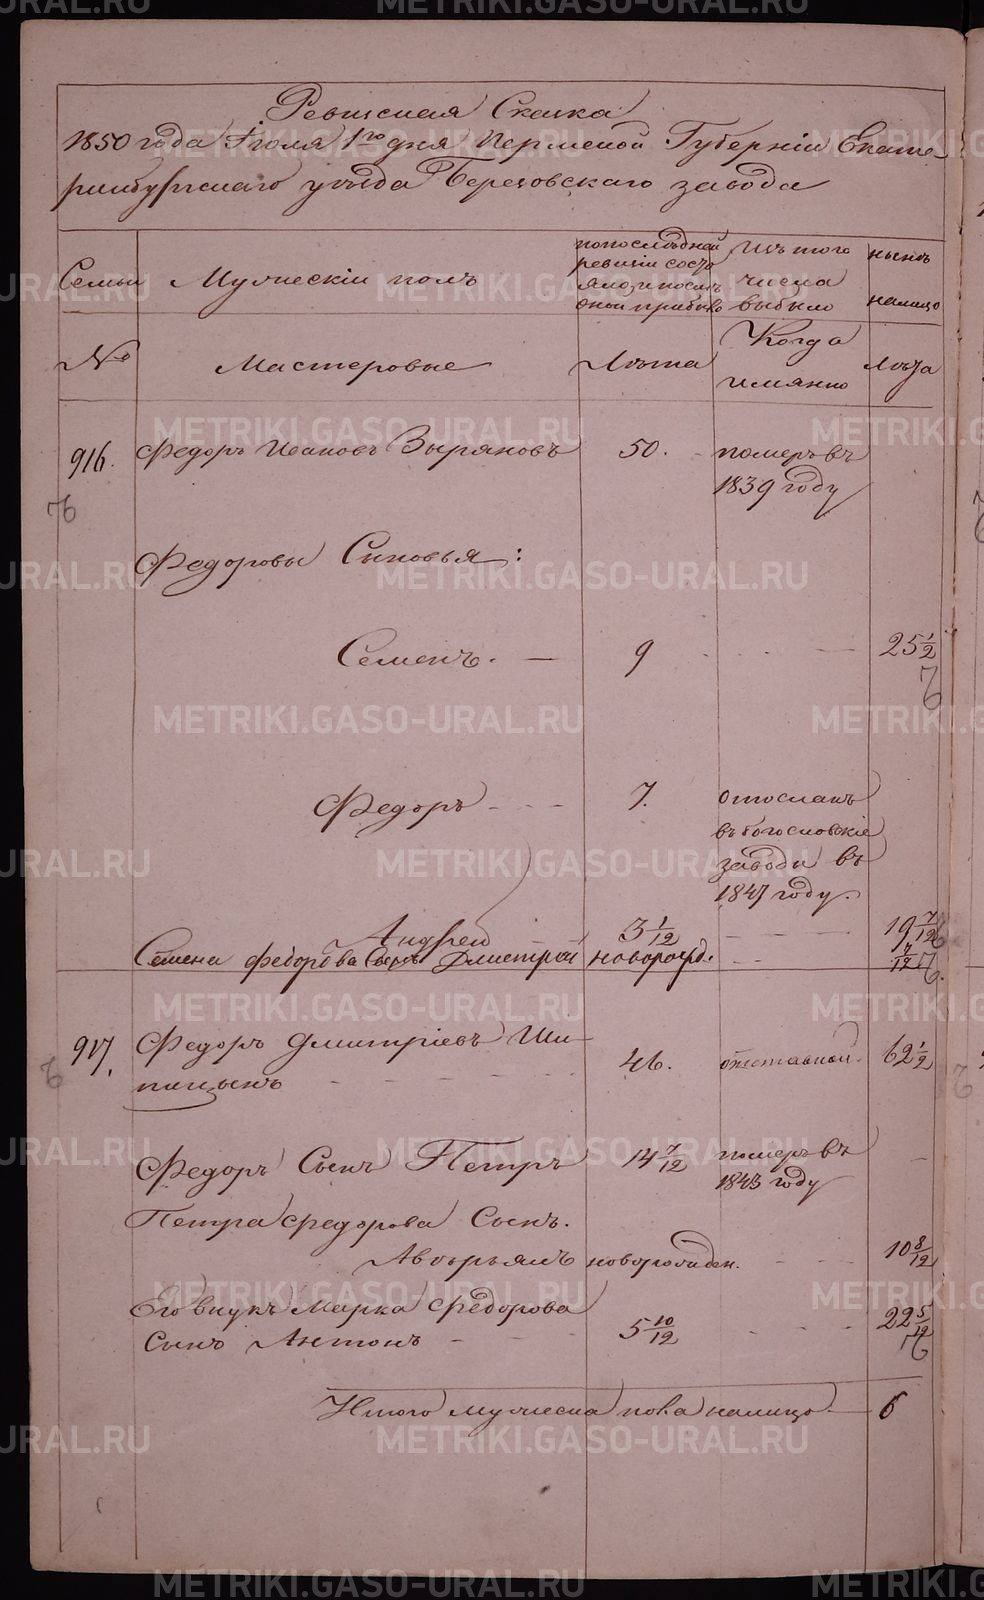 Ревизская Сказка
1850 года Іюля 1го дня Пермской Губерніи Екате-
ринбургскаго уѣзда Березовскаго завода
Семьи
Мужескій полъ
по последней ревизіи состояло, и после оной прибыло
Изъ того числа выбыло
нынѣ налицо
№
Мастеровые
Лѣта
Когда имянно
Лѣта
916. Федоръ Ивановъ Зыряновъ 50. померъ въ
1839 году
Федоровы Сыновья:
Семенъ. — 9 25 1/2
Федоръ 7. отосланъ
въ богословскіе
заводы въ
1847 году.
Андрей 3 1/12 19 7/12
Семена Федорова Сынъ Дмитрій новорожд. 7/12
917. Федоръ Дмитріевъ Ши- 46. отставной. 62 1/2
пицынъ
Федоръ Сынъ Петръ 14 7/12 померъ въ
1843 году
Петра Федорова Сынъ.
новорожден. 10 8/12
Его внукъ Марка Федорова
Сынъ Антонъ 5 10/12 22 5/12
Итого мужеска пола налицо 6
METRIKI.GASO-URAL.RU